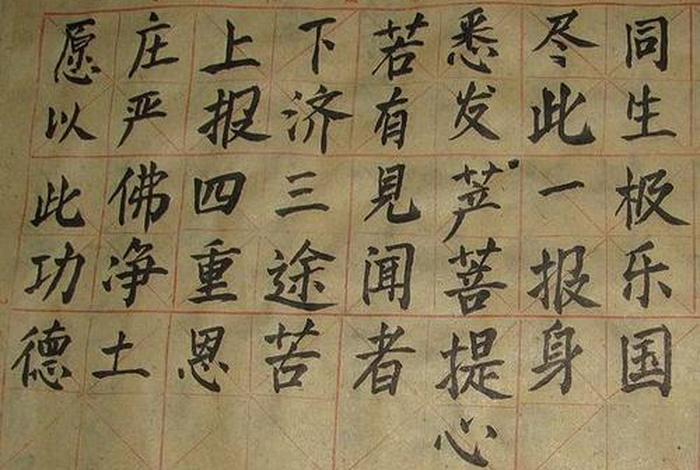 愿以此功德
庄严佛净土
上报四重恩
下济三途苦
若有見闻者
悉发菩提心
尽此一报身
同生极乐国